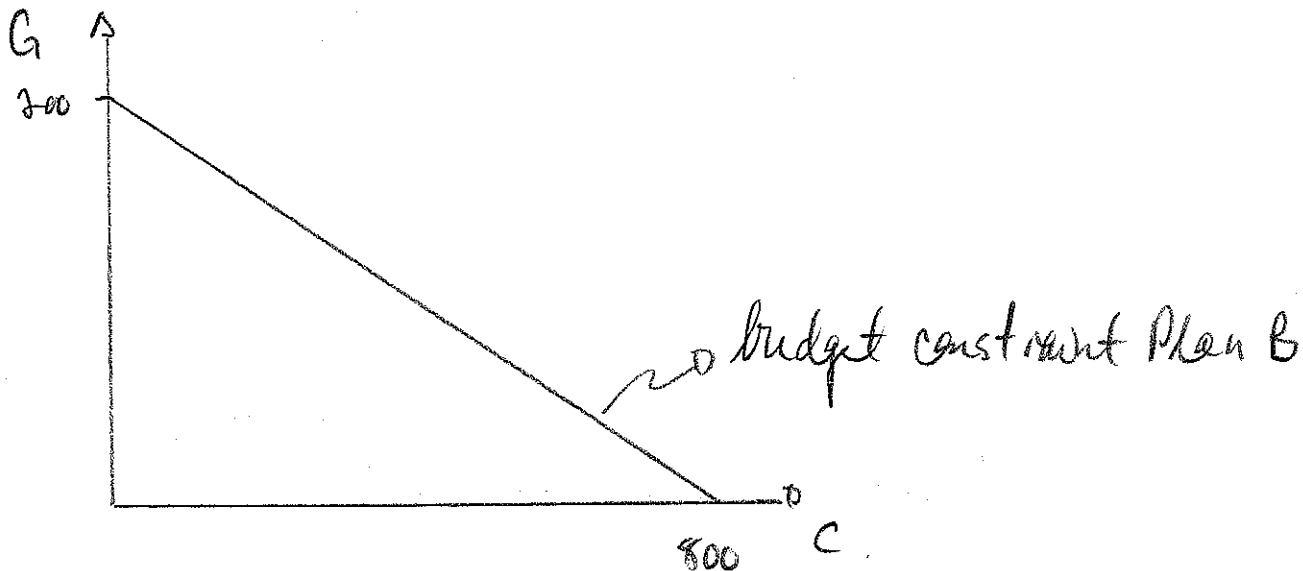 G
200
budget constraint Plan B
800
C